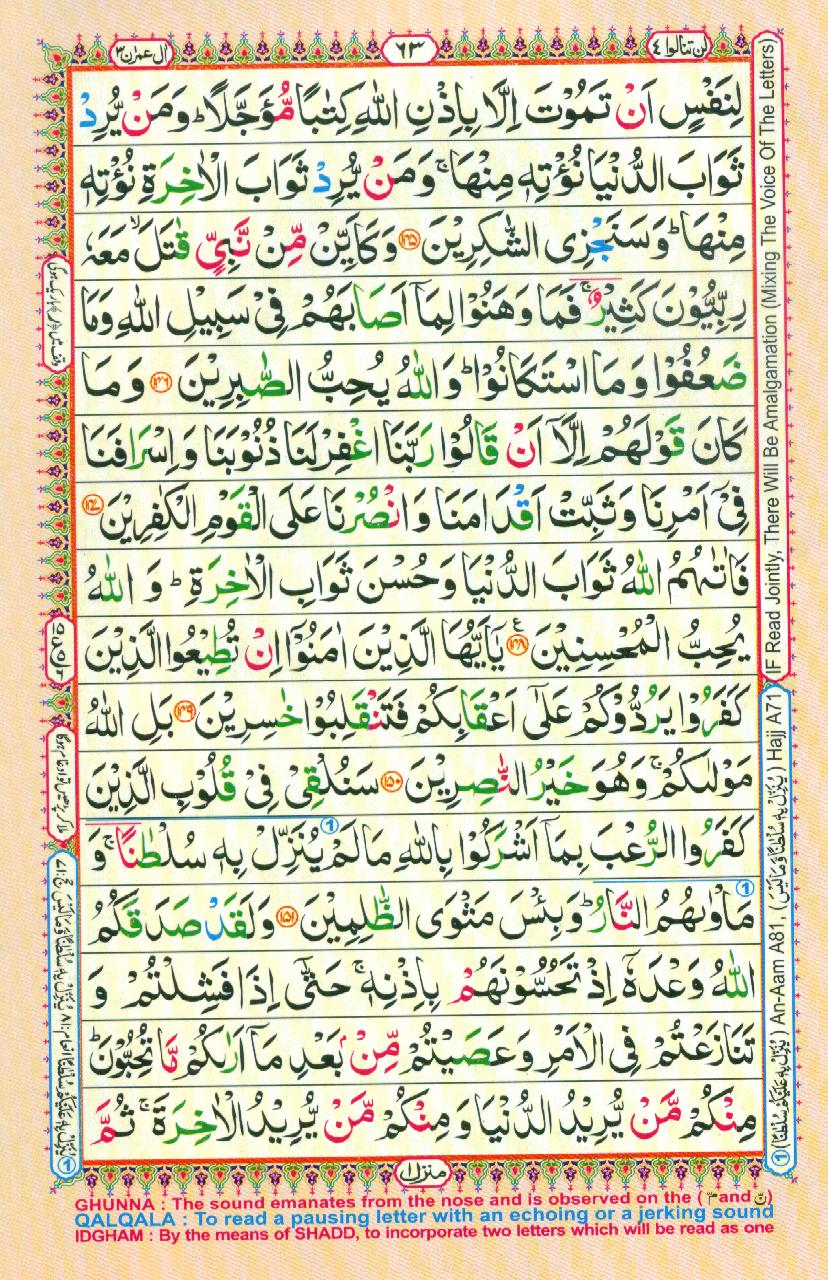 لن تنالوا ٤
٦٣
اٰل عمرٰن ٣
لِنَفْسٍ اَنْ تَمُوْتَ اِلَّا بِاِذْنِ اللّٰهِ كِتٰبًا مُّؤَجَّلًا ؕ وَمَنْ يُّرِدْ
ثَوَابَ الدُّنْيَا نُؤْتِهٖ مِنْهَا ۚ وَمَنْ يُّرِدْ ثَوَابَ الْاٰخِرَةِ نُؤْتِهٖ
مِنْهَا ؕ وَسَنَجْزِى الشّٰكِرِيْنَ ﴿۱۴۵﴾ وَكَاَيِّنْ مِّنْ نَّبِىٍّ قٰتَلَ ۙ مَعَهٗ
رِبِّيُّوْنَ كَثِيْرٌ ۚ فَمَا وَهَنُوْا لِمَاۤ اَصَابَهُمْ فِىْ سَبِيْلِ اللّٰهِ وَمَا
ضَعُفُوْا وَمَا اسْتَكَانُوْا ؕ وَاللّٰهُ يُحِبُّ الصّٰبِرِيْنَ ﴿۱۴۶﴾ وَمَا
كَانَ قَوْلَهُمْ اِلَّاۤ اَنْ قَالُوْا رَبَّنَا اغْفِرْ لَنَا ذُنُوْبَنَا وَاِسْرَافَنَا
فِىْۤ اَمْرِنَا وَثَبِّتْ اَقْدَامَنَا وَانْصُرْنَا عَلَى الْقَوْمِ الْكٰفِرِيْنَ ﴿۱۴۷﴾
فَاٰتٰٮهُمُ اللّٰهُ ثَوَابَ الدُّنْيَا وَحُسْنَ ثَوَابِ الْاٰخِرَةِ ؕ وَاللّٰهُ
يُحِبُّ الْمُحْسِنِيْنَ ﴿۱۴۸﴾ يٰۤاَيُّهَا الَّذِيْنَ اٰمَنُوْۤا اِنْ تُطِيْعُوا الَّذِيْنَ
كَفَرُوْا يَرُدُّوْكُمْ عَلٰٓى اَعْقَابِكُمْ فَتَنْقَلِبُوْا خٰسِرِيْنَ ﴿۱۴۹﴾ بَلِ اللّٰهُ
مَوْلٰٮكُمْ ۚ وَهُوَ خَيْرُ النّٰصِرِيْنَ ﴿۱۵۰﴾ سَنُلْقِىْ فِىْ قُلُوْبِ الَّذِيْنَ
كَفَرُوا الرُّعْبَ بِمَاۤ اَشْرَكُوْا بِاللّٰهِ مَا لَمْ يُنَزِّلْ بِهٖ سُلْطٰنًا ۚ وَ
مَاْوٰٮهُمُ النَّارُ ؕ وَبِئْسَ مَثْوَى الظّٰلِمِيْنَ ﴿۱۵۱﴾ وَلَقَدْ صَدَقَكُمُ
اللّٰهُ وَعْدَهٗۤ اِذْ تَحُسُّوْنَهُمْ بِاِذْنِهٖ ۚ حَتّٰۤى اِذَا فَشِلْتُمْ وَ
تَنَازَعْتُمْ فِى الْاَمْرِ وَعَصَيْتُمْ مِّنْۢ بَعْدِ مَاۤ اَرٰٮكُمْ مَّا تُحِبُّوْنَ ؕ
مِنْكُمْ مَّنْ يُّرِيْدُ الدُّنْيَا وَمِنْكُمْ مَّنْ يُّرِيْدُ الْاٰخِرَةَ ۚ ثُمَّ
منزل ۱
IF Read Jointly, There Will Be Amalgamation (Mixing The Voice Of The Letters)
① (يُنَزِّلْ بِهٖ عَلَيْكُمْ سُلْطٰنًا) An-Aam A81, (يُنَزِّلْ بِهٖ سُلْطٰنًا وَّمَا لَيْسَ) Hajj A71
GHUNNA : The sound emanates from the nose and is observed on the (مّ and نّ)
QALQALA : To read a pausing letter with an echoing or a jerking sound
IDGHAM : By the means of SHADD, to incorporate two letters which will be read as one